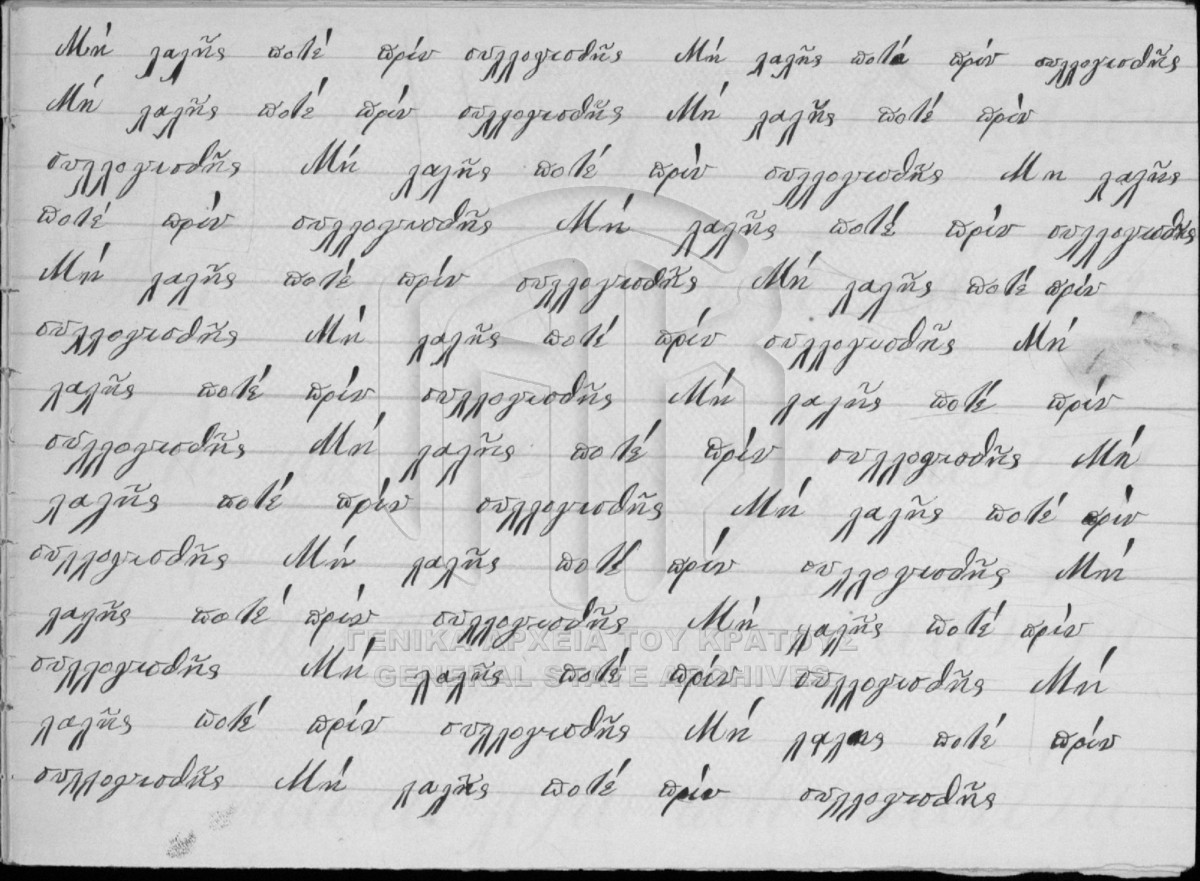 Μή λαλῆς ποτέ πρίν συλλογισθῆς Μή λαλῆς ποτέ πρίν συλλογισθῆς
Μή λαλῆς ποτέ πρίν συλλογισθῆς Μή λαλῆς ποτέ πρίν
συλλογισθῆς Μή λαλῆς ποτέ πρίν συλλογισθῆς Μη λαλῆς
ποτέ πρίν συλλογισθῆς Μή λαλῆς ποτέ πρίν συλλογισθῆς
Μή λαλῆς ποτέ πρίν συλλογισθῆς Μή λαλῆς ποτέ πρίν
συλλογισθῆς Μή λαλῆς ποτέ πρίν συλλογισθῆς Μή
λαλῆς ποτέ πρίν συλλογισθῆς Μή λαλῆς ποτέ πρίν
συλλογισθῆς Μή λαλῆς ποτέ πρίν συλλογισθῆς Μή
λαλῆς ποτέ πρίν συλλογισθῆς Μή λαλῆς ποτέ πρίν
συλλογισθῆς Μή λαλῆς ποτέ πρίν συλλογισθῆς Μή
λαλῆς ποτέ πρίν συλλογισθῆς Μή λαλῆς ποτέ πρίν
ΓΕΝΙΚΑ ΑΡΧΕΙΑ ΤΟΥ ΚΡΑΤΟΥΣ
συλλογισθῆς Μή λαλῆς ποτέ πρίν συλλογισθῆς Μή
GENERAL STATE ARCHIVES
λαλῆς ποτέ πρίν συλλογισθῆς Μή λαλης ποτέ πρίν
συλλογισθῆς Μή λαλῆς ποτέ πρίν συλλογισθῆς